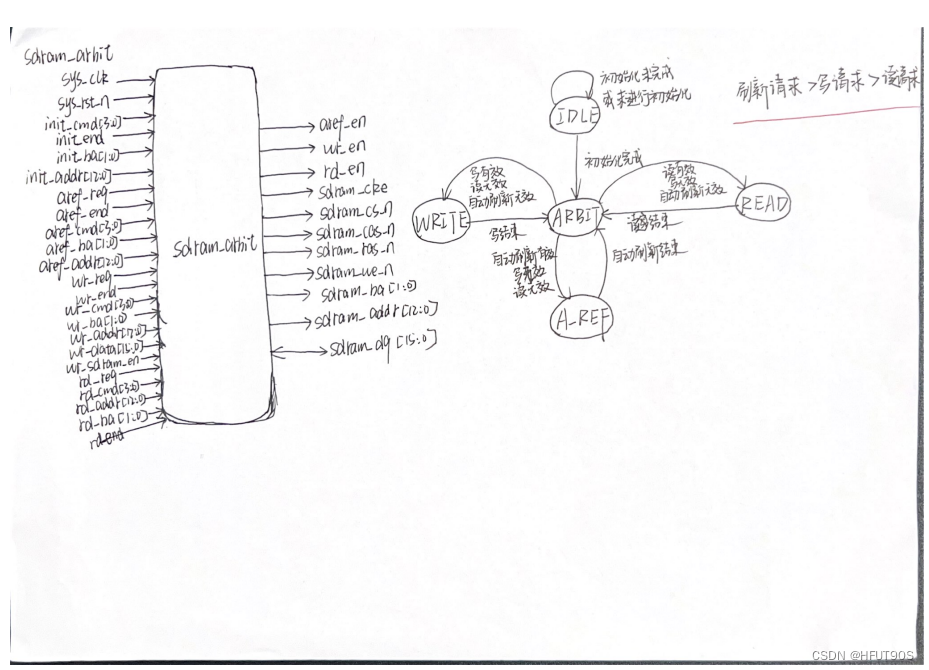 sdram_arbit
sys_clk
sys_rst_n
init_cmd[3:0]
init_end
init_ba[1:0]
init_addr[12:0]
aref_req
aref_end
aref_cmd[3:0]
aref_ba[1:0]
aref_addr[12:0]
wr_req
wr_end
wr_cmd[3:0]
wr_ba[1:0]
wr_addr[12:0]
wr_data[15:0]
wr_sdram_en
rd_req
rd_cmd[3:0]
rd_addr[12:0]
rd_ba[1:0]
rd_end
sdram_arbit
aref_en
wr_en
rd_en
sdram_cke
sdram_cs_n
sdram_cas_n
sdram_ras_n
sdram_we_n
sdram_ba[1:0]
sdram_addr[12:0]
sdram_dq[15:0]
初始化未完成
或未进行初始化
IDLE
初始化完成
写有效
读无效
自动刷新无效
WRITE
写结束
ARBIT
读有效
写无效
自动刷新无效
READ
读结束
自动刷新有效
写有效
读无效
自动刷新结束
A_REF
刷新请求>写请求>读请求
CSDN @HFUT90S